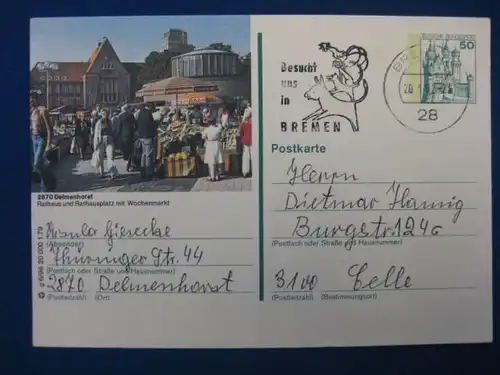 Besucht
uns
in
BREMEN
28
DEUTSCHE BUNDESPOST
50
2870 Delmenhorst
Rathaus und Rathausplatz mit Wochenmarkt
Postkarte
Herrn
Dietmar Hannig
Burgstr.124c
(Postfach oder Straße und Hausnummer)
3100 Celle
(Postleitzahl) (Bestimmungsort)
Ursula Giesecke
(Absender)
Thüringer Str. 44
(Postfach oder Straße und Hausnummer)
2870 Delmenhorst
(Postleitzahl) (Ort)